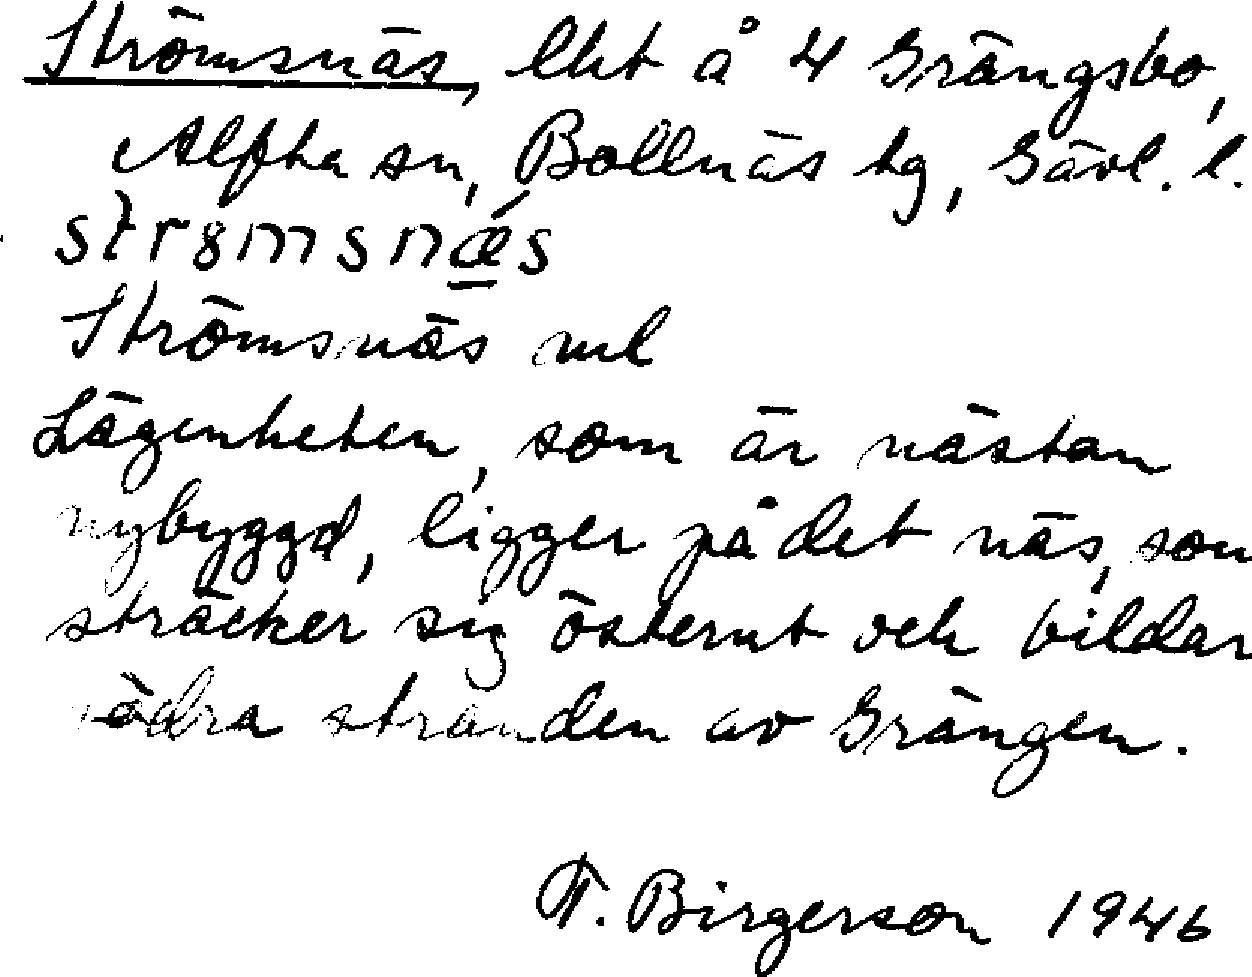 Strömsnäs, lht å 4 Grängsbo,
Alfta sn, Bollnäs tg, Gävl. l.
strømsnǽs
Strömsnäs ml
Lägenheten, som är nästan
nybyggd, ligger på det näs, som
sträcker sig österut och bildar
södra stranden av Grängen.
F. Birgerson 1946